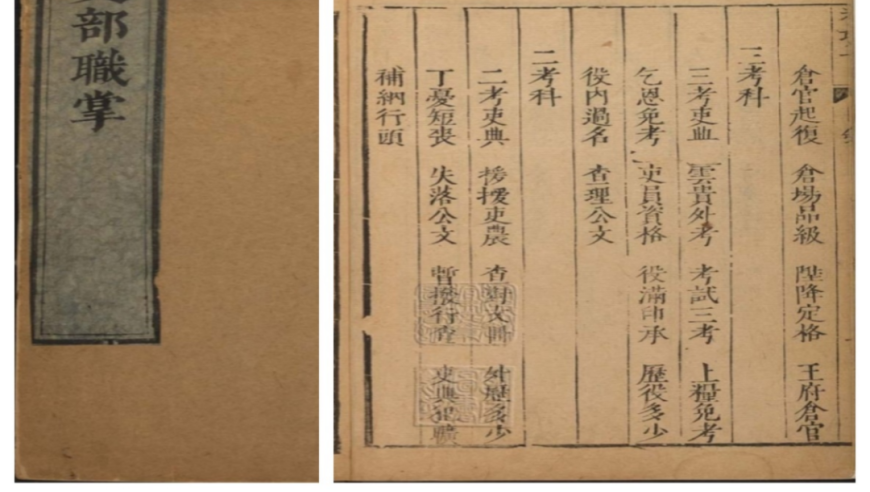 部職掌
倉官起復 倉場品級 陞降定格 王府倉官
三考科
三考吏典 雲貴外考 考試三考 上糧免考
乞恩免考 吏員資格 役滿印承 歷役多少
役内過名 查理公文
二考科
二考吏典 撥吏農 查對文冊 外歷多少
丁憂短喪 失落公文 暫撥行查 吏典犯贓
補納行頭